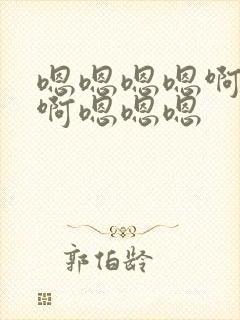 嗯嗯嗯嗯啊
啊嗯嗯嗯
郭伯龄